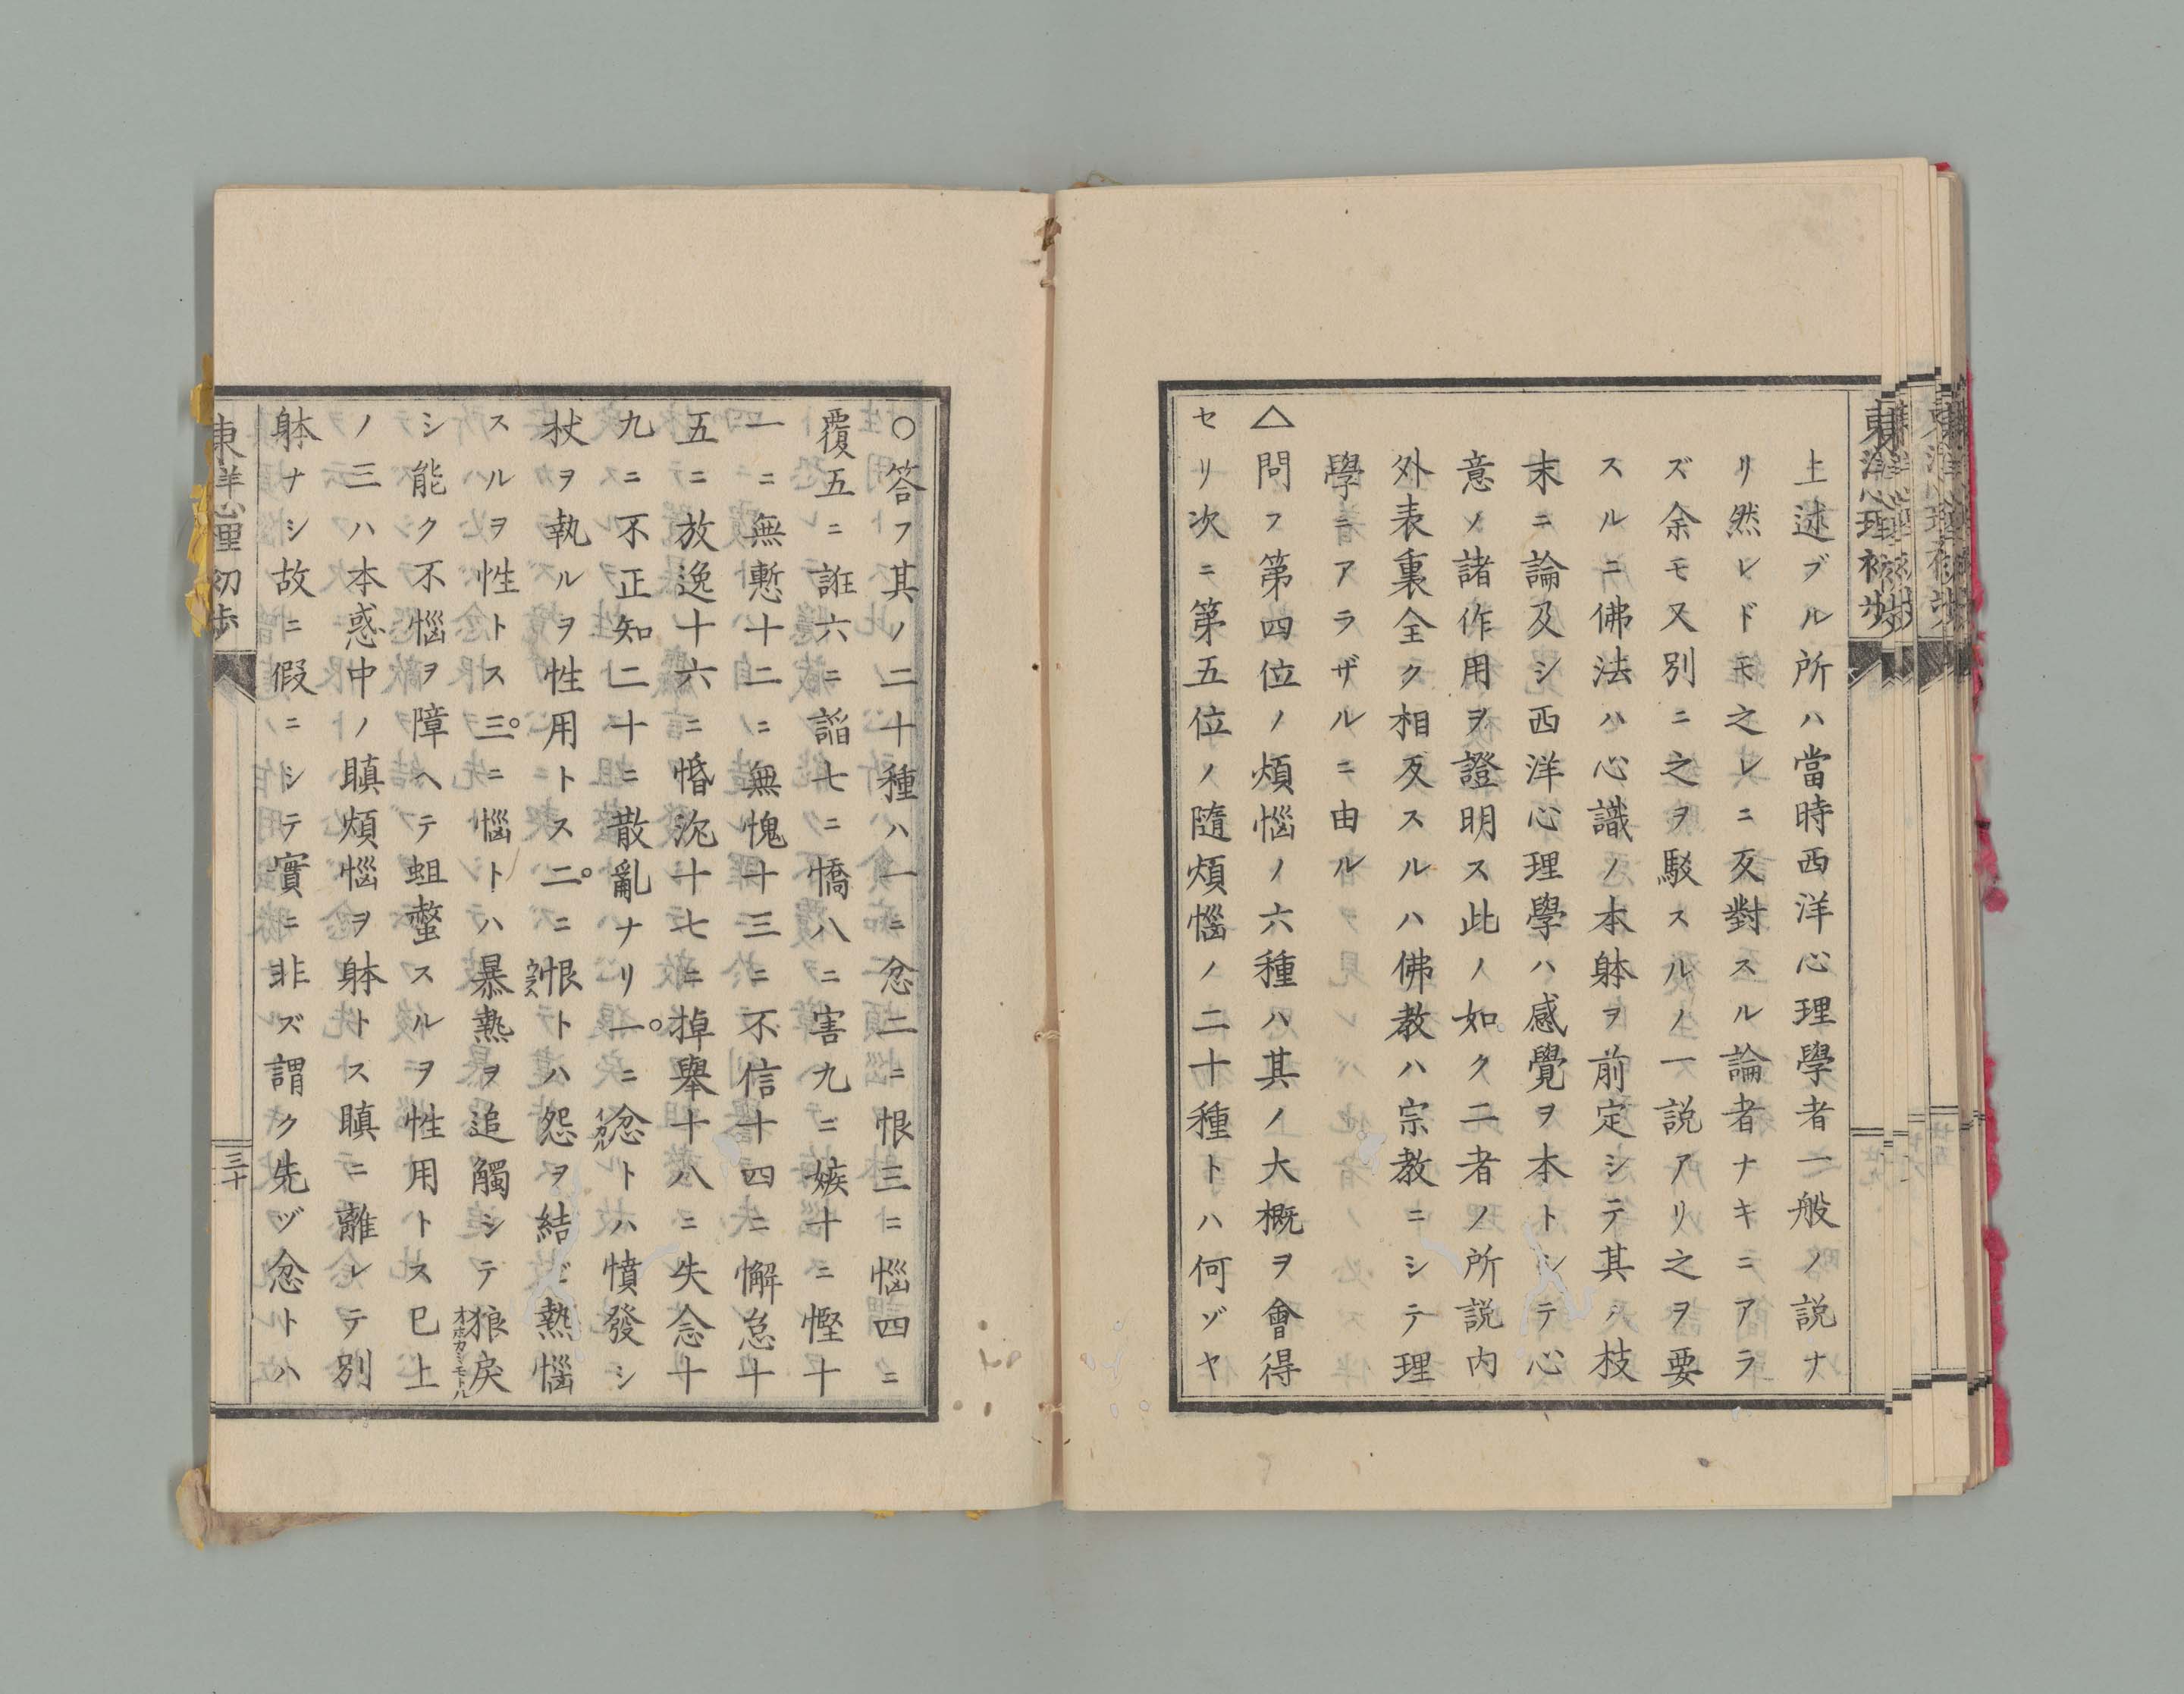 東洋心理初歩
上述ブル所ハ當時西洋心理學者一般ノ説ナ
リ然レドモ之レニ反對スル論者ナキニアラ
ズ余モ又別ニ之ヲ駁スルノ一説アリ之ヲ要
スルニ佛法ハ心識ノ本躰ヲ前定シテ其ノ枝
末ニ論及シ西洋心理學ハ感覺ヲ本トシテ心
意ノ諸作用ヲ證明ス此ノ如ク二者ノ所説内
外表裏全ク相反スルハ佛教ハ宗教ニシテ理
學ニアラザルニ由ル
△問フ第四位ノ煩惱ノ六種ハ其ノ大概ヲ會得
セリ次ニ第五位ノ隨煩惱ノ二十種トハ何ゾヤ
○答フ其ノ二十種ハ一ニ忿二ニ恨三ニ惱四ニ
覆五ニ誑六ニ諂七ニ憍八ニ害九ニ嫉十ニ慳十
一ニ無慙十二ニ無愧十三ニ不信十四ニ懈怠十
五ニ放逸十六ニ惛沈十七ニ掉舉十八ニ失念十
九ニ不正知二十ニ散亂ナリ一。ニ忿トハ憤發シ
杖ヲ執ルヲ性用トス二。ニ恨トハ怨ヲ結ビ熱惱
スルヲ性トス三。ニ惱トハ暴熱ヲ追觸シテ狼戾
オホカミモトル
シ能ク不惱ヲ障ヘテ蛆螫スルヲ性用トス已上
ノ三ハ本惑中ノ瞋煩惱ヲ躰トス瞋ニ離レテ別
躰ナシ故ニ假ニシテ實ニ非ズ謂ク先ヅ忿トハ
東洋心理初歩
三十